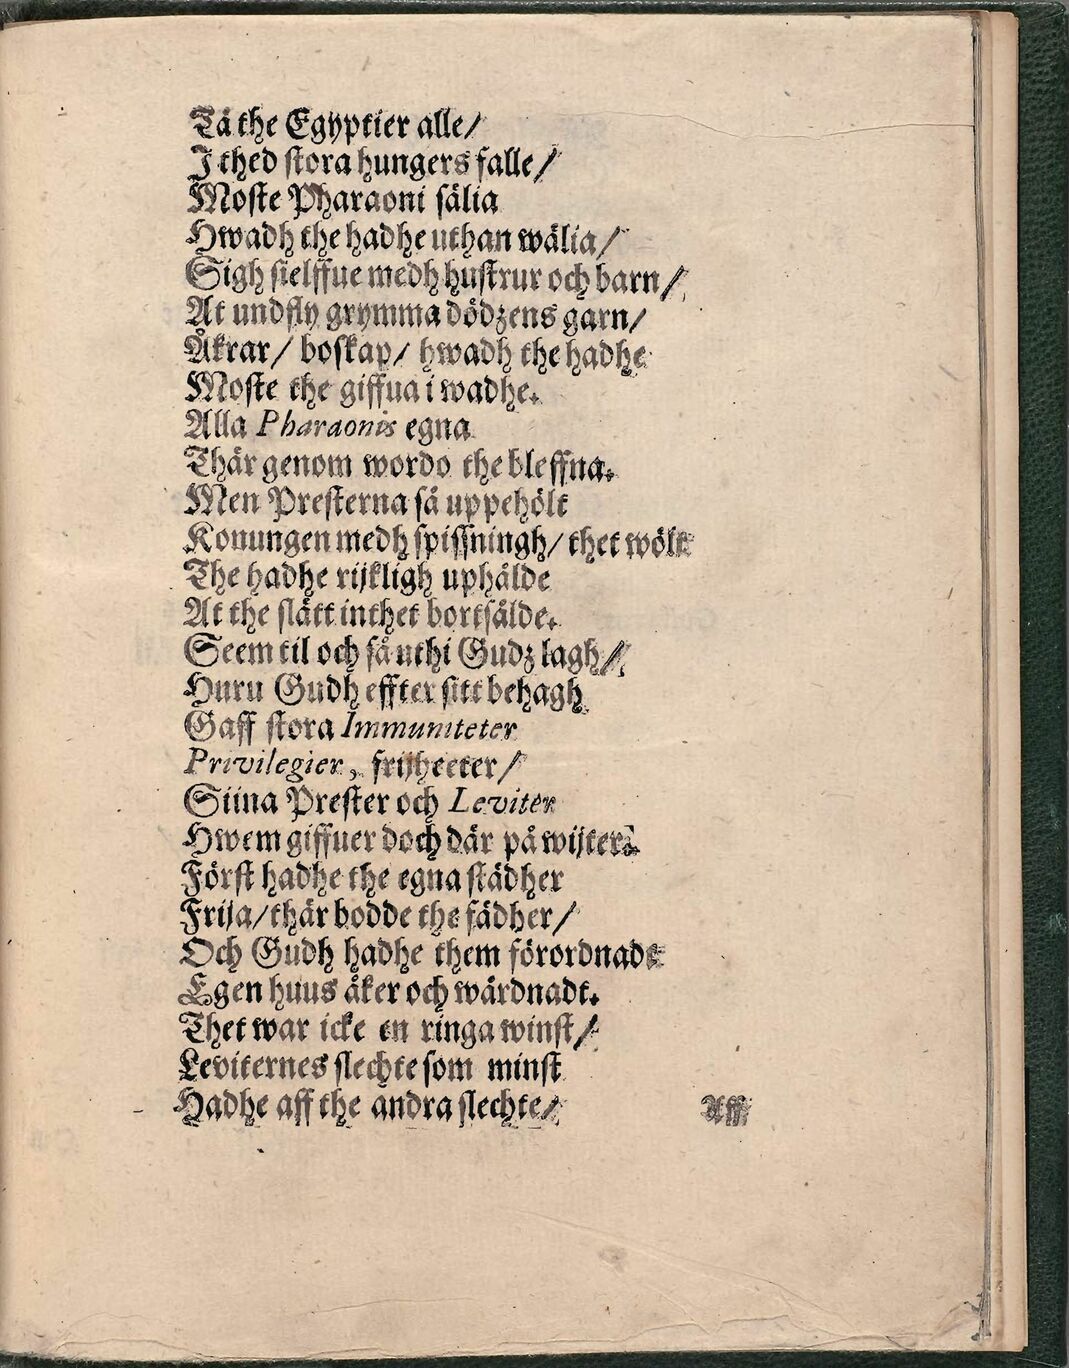 Tå the Egyptier alle/
J thed stora hungers falle/
Moste Pharaoni sälia
Hwadh the hadhe uthan wälia/
Sigh sielffue medh hustrur och barn/
At undfly grymma dödzens garn/
Åkrar/ boskap/ hwadh the hadhe
Moste the giffua i wadhe.
Alla Pharaonis egna
Thär genom wordo the bleffna.
Men Presterna så uppehölt
Konungen medh spissningh/ thet wölt
The hadhe rijkligh uphälde
At the slätt inthet bortsålde.
Seem til och så uthi Gudz lagh/
Huru Gudh effter sitt behagh
Gaff stora Immuniteter
Privilegier, frijheeter/
Siina Prester och Leviter
Hwem giffuer doch där på wijter?
Först hadhe the egna städher
Frija/ thär bodde the fädher/
Och Gudh hadhe them förordnadt
Egen huus åker och wårdnadt.
Thet war icke en ringa winst/
Leviternes slechte som minst
Hadhe aff the andra slechte/
Aff